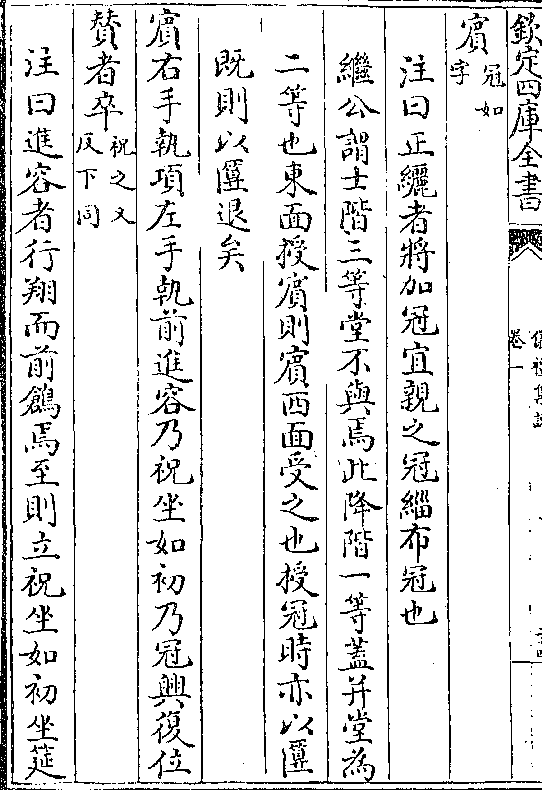 欽定四庫全書
儀禮集說
卷一
賓 冠如
字
注曰正纚者將加冠宜親之冠緇布冠也
繼公謂士階三等堂不與焉此降階一等蓋并堂為
二等也東面授賓則賓西面受之也授冠時亦以匴
既則以匴退矣
賓右手執項左手執前進容乃祝坐如初乃冠興復位
贊者卒 祝之又
反下同
注曰進容者行翔而前鶬焉至則立祝坐如初坐筵